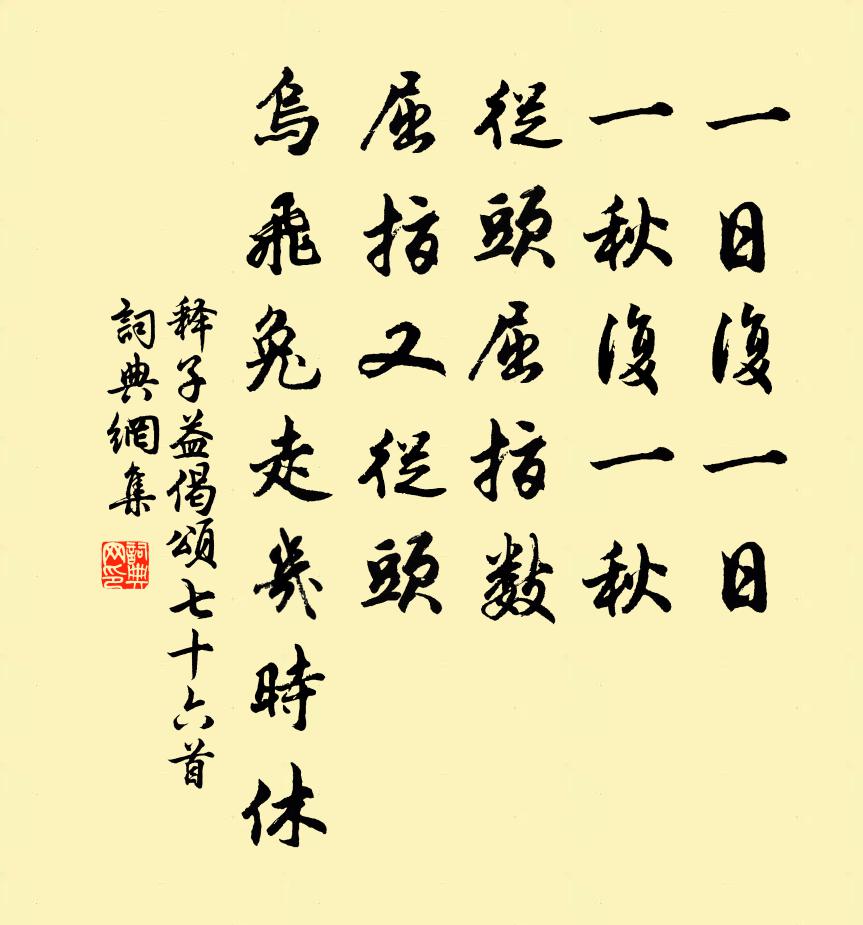 一日復一日
一秋復一秋
從頭屈指數
屈指又從頭
烏飛兔走幾時休
釋子益偈頌七十六首
詞典網集
詞典网印